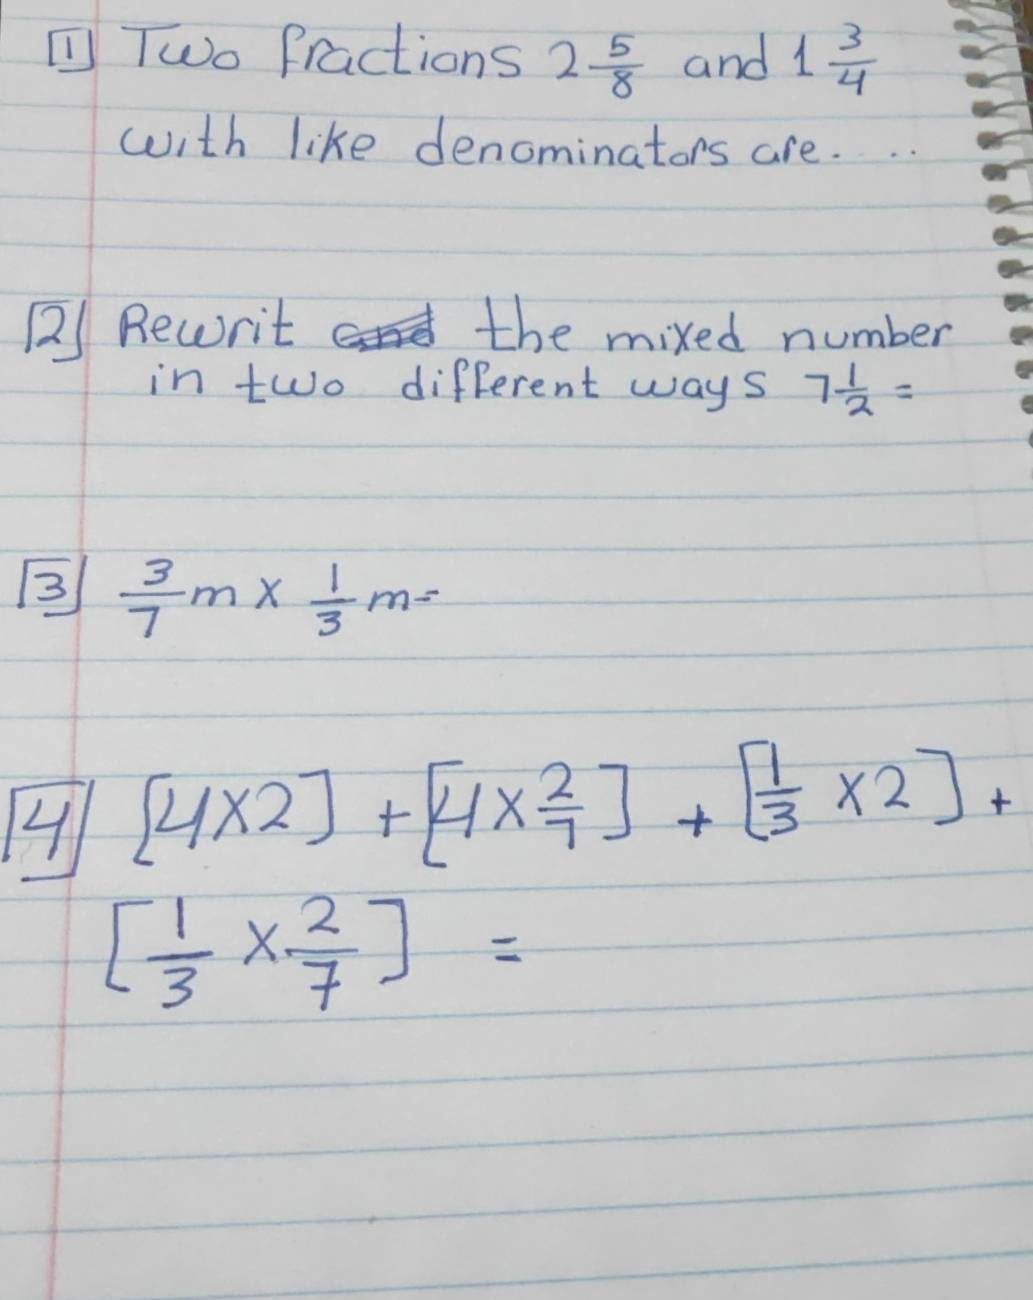 [1] Two fractions 2 5/8 and 1 3/4
with like denominators are. ...
[2] Rewrit and the mixed number
in two different ways 7 1/2 =
[3] 3/7 m x 1/3 m=
[4] [4x2] + [4 x 2/7] + [1/3 x 2] +
[1/3 x 2/7] =